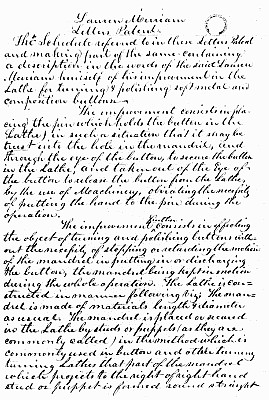 Lauren Merriam
Letters Patent
The Schedule referred to in these Letters Patent
and making part of the same containing
a description in the words of the said Lauren
Merriam himself of his improvement in the
Lathe for turning & polishing soft metal and
composition buttons.
The improvement consists in placing
the pin which holds the button in the
Lathe, in such a situation that it may be
thrust into the hole in the mandril, and
through the eye of the button, to secure the button
in the Lathe, and taken out of the Eye of
the button to release the button from the Lathe,
by the use of Machinery, obviating the necessity
of putting the hand to the pin during the
operation.
The improvement further consists in effecting
the object of turning and polishing buttons without
the necessity of stopping or retarding the motion
of the mandril in putting in or discharging
the button, the mandril being kept in motion
during the whole operation. The Lathe is constructed
in manner following viz. The mandril
is made of materials length & diameter
as usual. The mandril is placed or secured
in the Lathe by studs or puppets (as they are
commonly called) in the method which is
commonly used in button and other turning
turning Lathes that part of the mandril
which projects to the right of right hand
stud or puppet is formed round straight